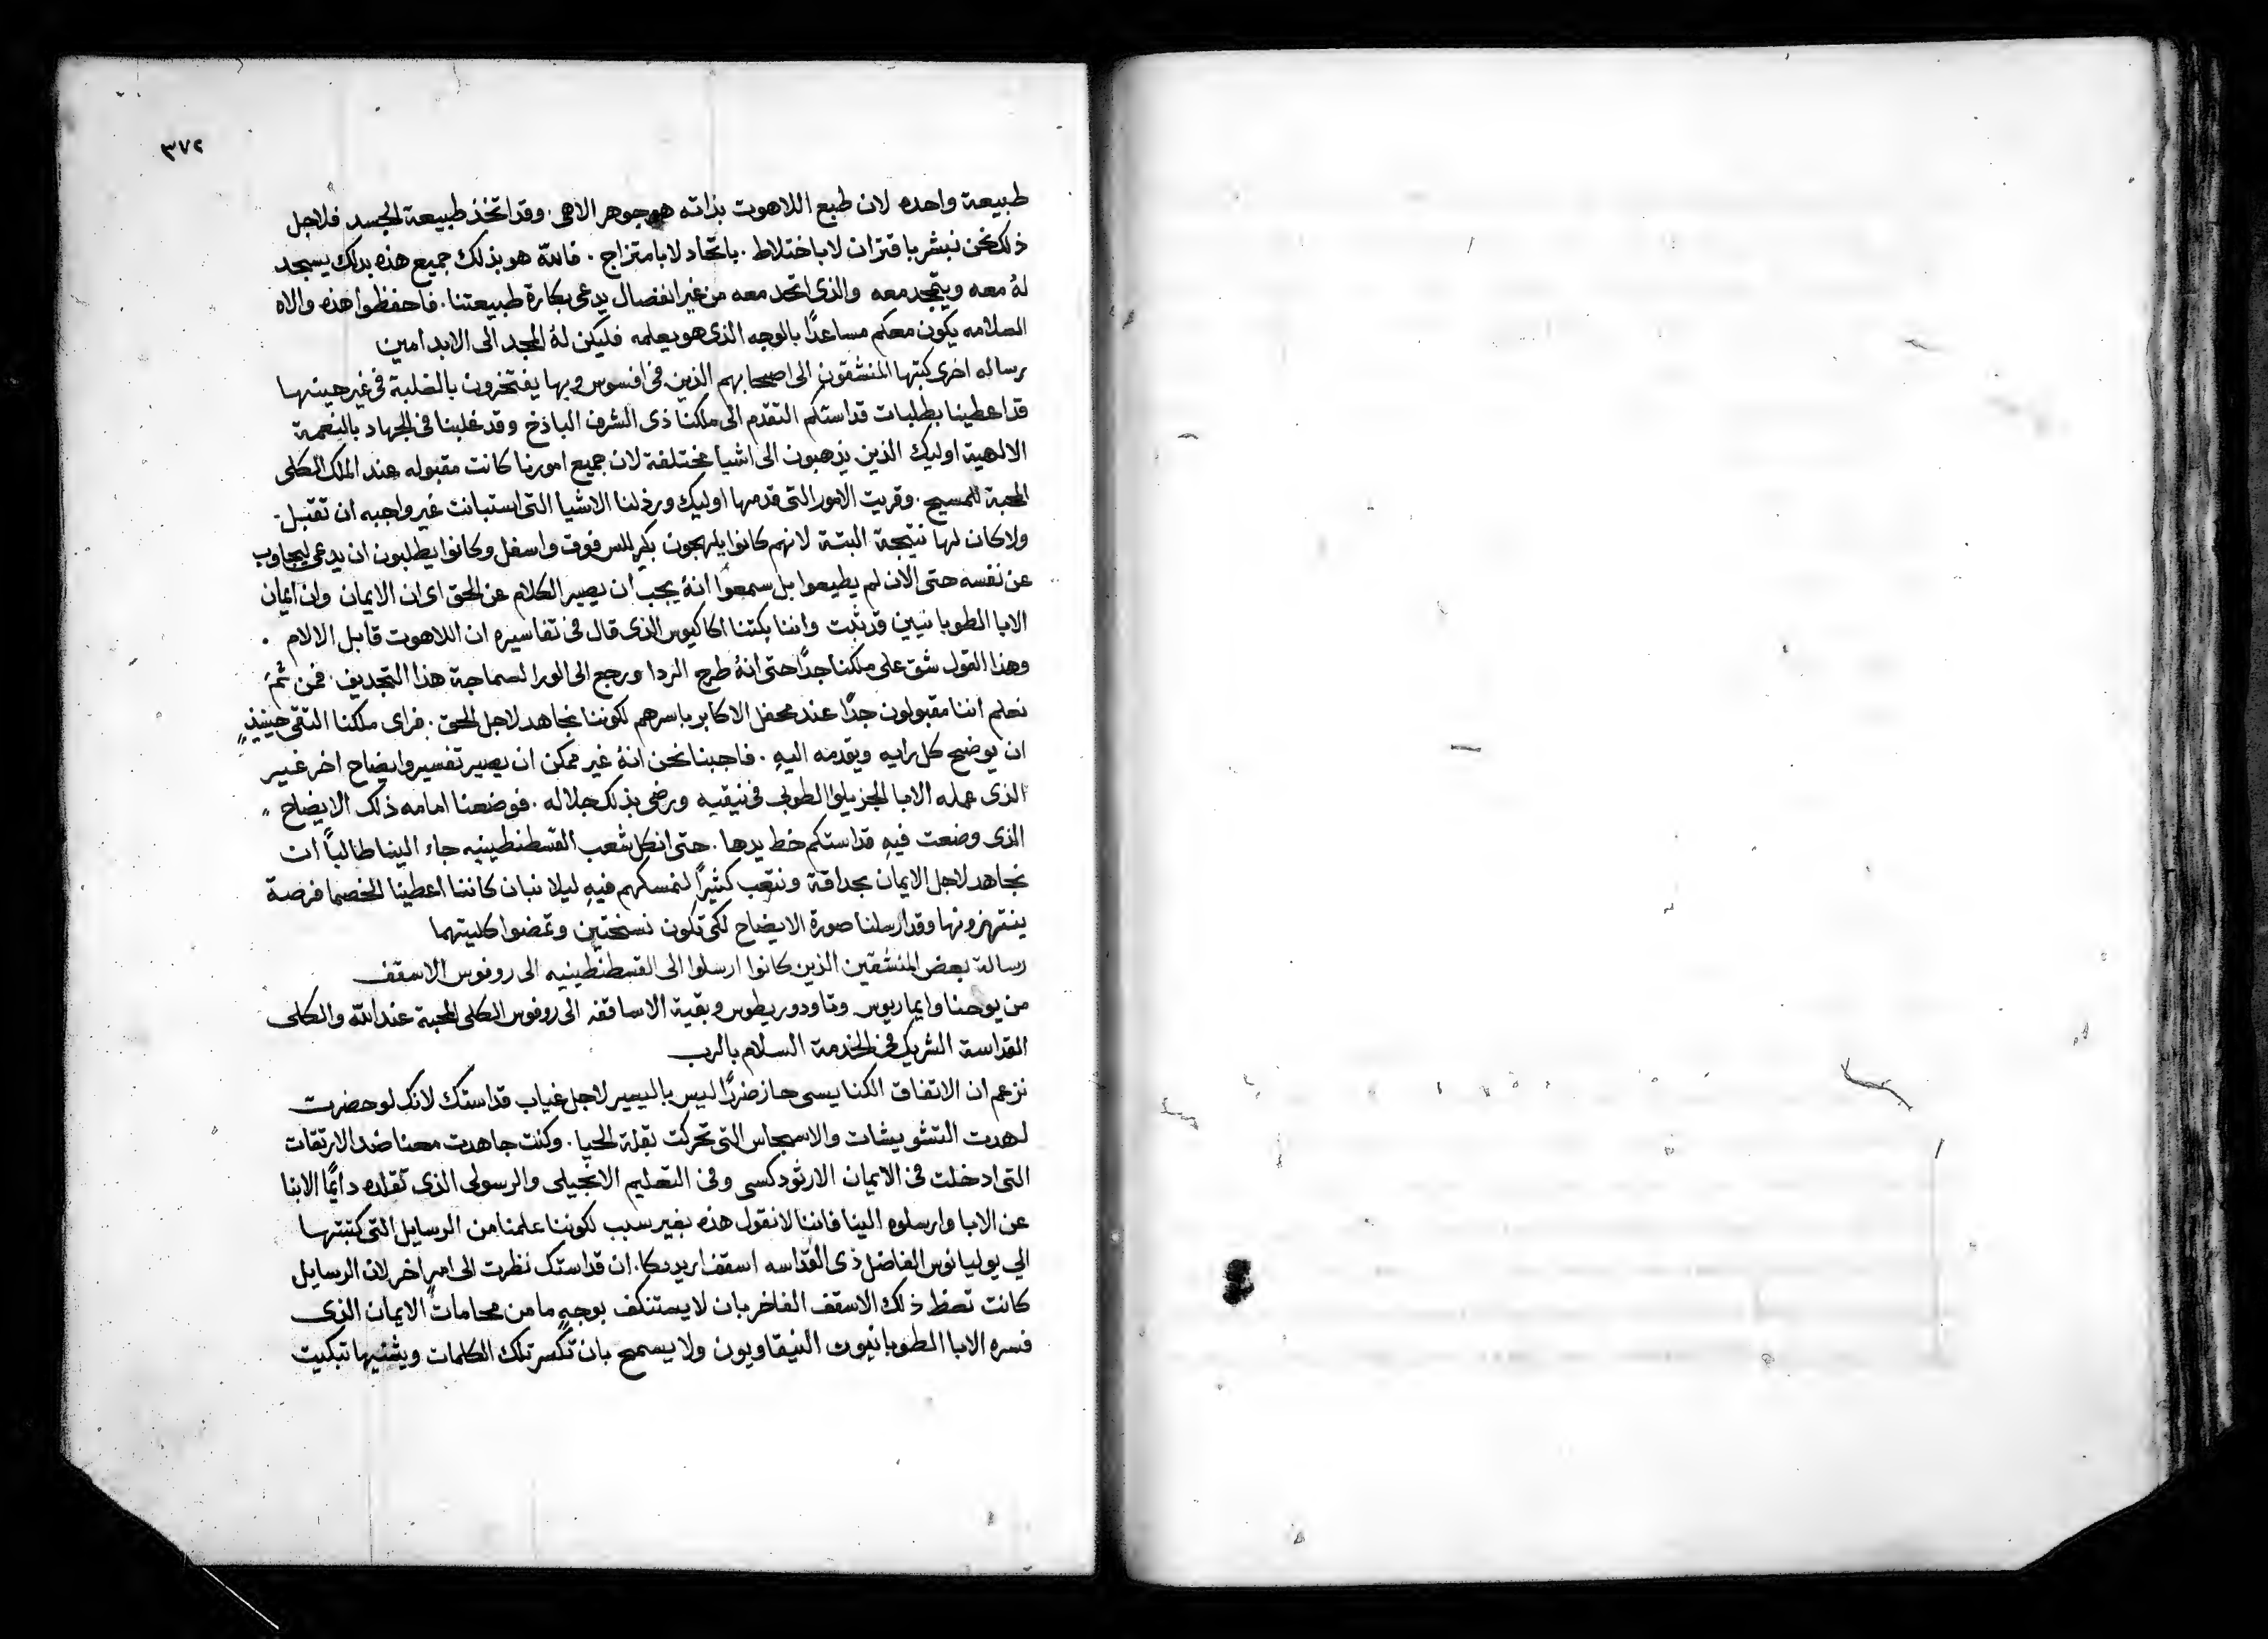 ٣٧٢
طبيعة واحده لان طبع اللاهوت بذاته هو جوهر الاهى. وقد اتخذ طبيعة الجسد فلاجل
ذلك نحن نبشر باقتران لا باختلاط. باتحاد لا بامتزاج. فالله هو بذلك جميع هذه بدلك يسجد
لهُ معه ويتمجد معه والذى اتحد معه من غير انفصال يدعى بكارة طبيعتنا. فاحفظوا هذه والاه
السلامه يكون معكم مساعدًا بالوجه الذى هو يعلمه فليكن لهُ المجد الى الابد امين
رساله اخرى كتبها المنشقون الى اصحابهم الذين فى افسوس وبها يفتخرون بالغلبة فى غير حينها
قد اعطينا بطلبات قداستكم التقدم الى ملكنا ذى الشرف الباذخ وقد غلبنا فى الجهاد بالنعمة
الالهية اوليك الذين يذهبون الى اشيا مختلفة لان جميع امورنا كانت مقبوله عند الملك الكلى
المحبة للمسيح. وقريت الامور التى قدمها اوليك ورذلنا الاشيا التى استبانت غير واجبه ان تقبل
ولا كان لها نتيجة البتة لانهم كانوا يلهجون بكيرللس فوق واسفل وكانوا يطلبون ان يدعى ليجاوب
عن نفسه حتى الان لم يطيعوا بل سمعوا انهُ يجب ان يصير الكلام عن الحق اى ان الايمان وان ايمان
الابا الطوبانيين قد ثبت واننا بكتنا اكاكيوس الذى قال فى تفاسيره ان اللاهوت قابل الالام.
وهذا القول شق على ملكنا جدًا حتى انهُ طرح الردا ورجع الى الورا لسماجة هذا التجديف. فمن ثمَّ
نعلم اننا مقبولون جدًا عند محفل الاكابر باسرهم لكوننا نجاهد لاجل الحق. فراى ملكنا التقى حينيذٍ
ان يوضح كل رايه ويقدمه اليهِ. فاجبنا نحن انهُ غير ممكن ان يصير تفسير وايضاح اخر غير
الذى عمله الابا الجزيلوا الطوبى فى نيقيه ورضى بذلك جلاله. فوضعنا امامه ذلك الايضاح
الذى وضعت فيهِ قداستكم خط يدها. حتى ان كل شعب القسطنطينيه جاء الينا طالبًا ان
نجاهد لاجل الايمان بحداقة ونتعب كثيرًا لنمسكهم فيهِ ليلا نبان كاننا اعطينا الخصما فرصة
ينتهزونها وقد ارسلنا صورة الايضاح لكى تكون نسختين وتمضوا كليتهما
رسالة بعض المنشقين الذين كانوا ارسلوا الى القسطنطينيه الى روفوس الاسقف
من يوحنا وايماريوس وتاودوريطوس وبقية الاساقفه الى روفوس الكلى المحبة عند الله والكلى
القداسة الشريك فى الخدمة السلام بالرب
نزعم ان الاتفاق الكنايسى حاز ضررًا ليس باليسير لاجل غياب قداستك لانك لو حضرت
لهدت التشويشات والاسجاس التى تحركت بقلة الحيا. وكنت جاهدت معنا ضد الارتقات
التى ادخلت فى الايمان الارثودكسى وفى التعليم الانجيلى والرسولى الذى تقلده دايمًا الابنا
عن الابا وارسلوه الينا فاننا لا نقول هذه بغير سبب لكوننا علمنا من الرسايل التى كتبتها
الي يوليانوس الفاضل ذى القداسه اسقف ان قداستك نظرت الى امرٍ اخر لان الرسايل
كانت تعظ ذلك الاسقف الفاخر بان لا يستنكف بوجهٍ ما من محامات الايمان الذى
فسره الابا الطوبانيون النيقاويون ولا يسمح بان تكسر تلك الكلمات ويثنيها تبكيت